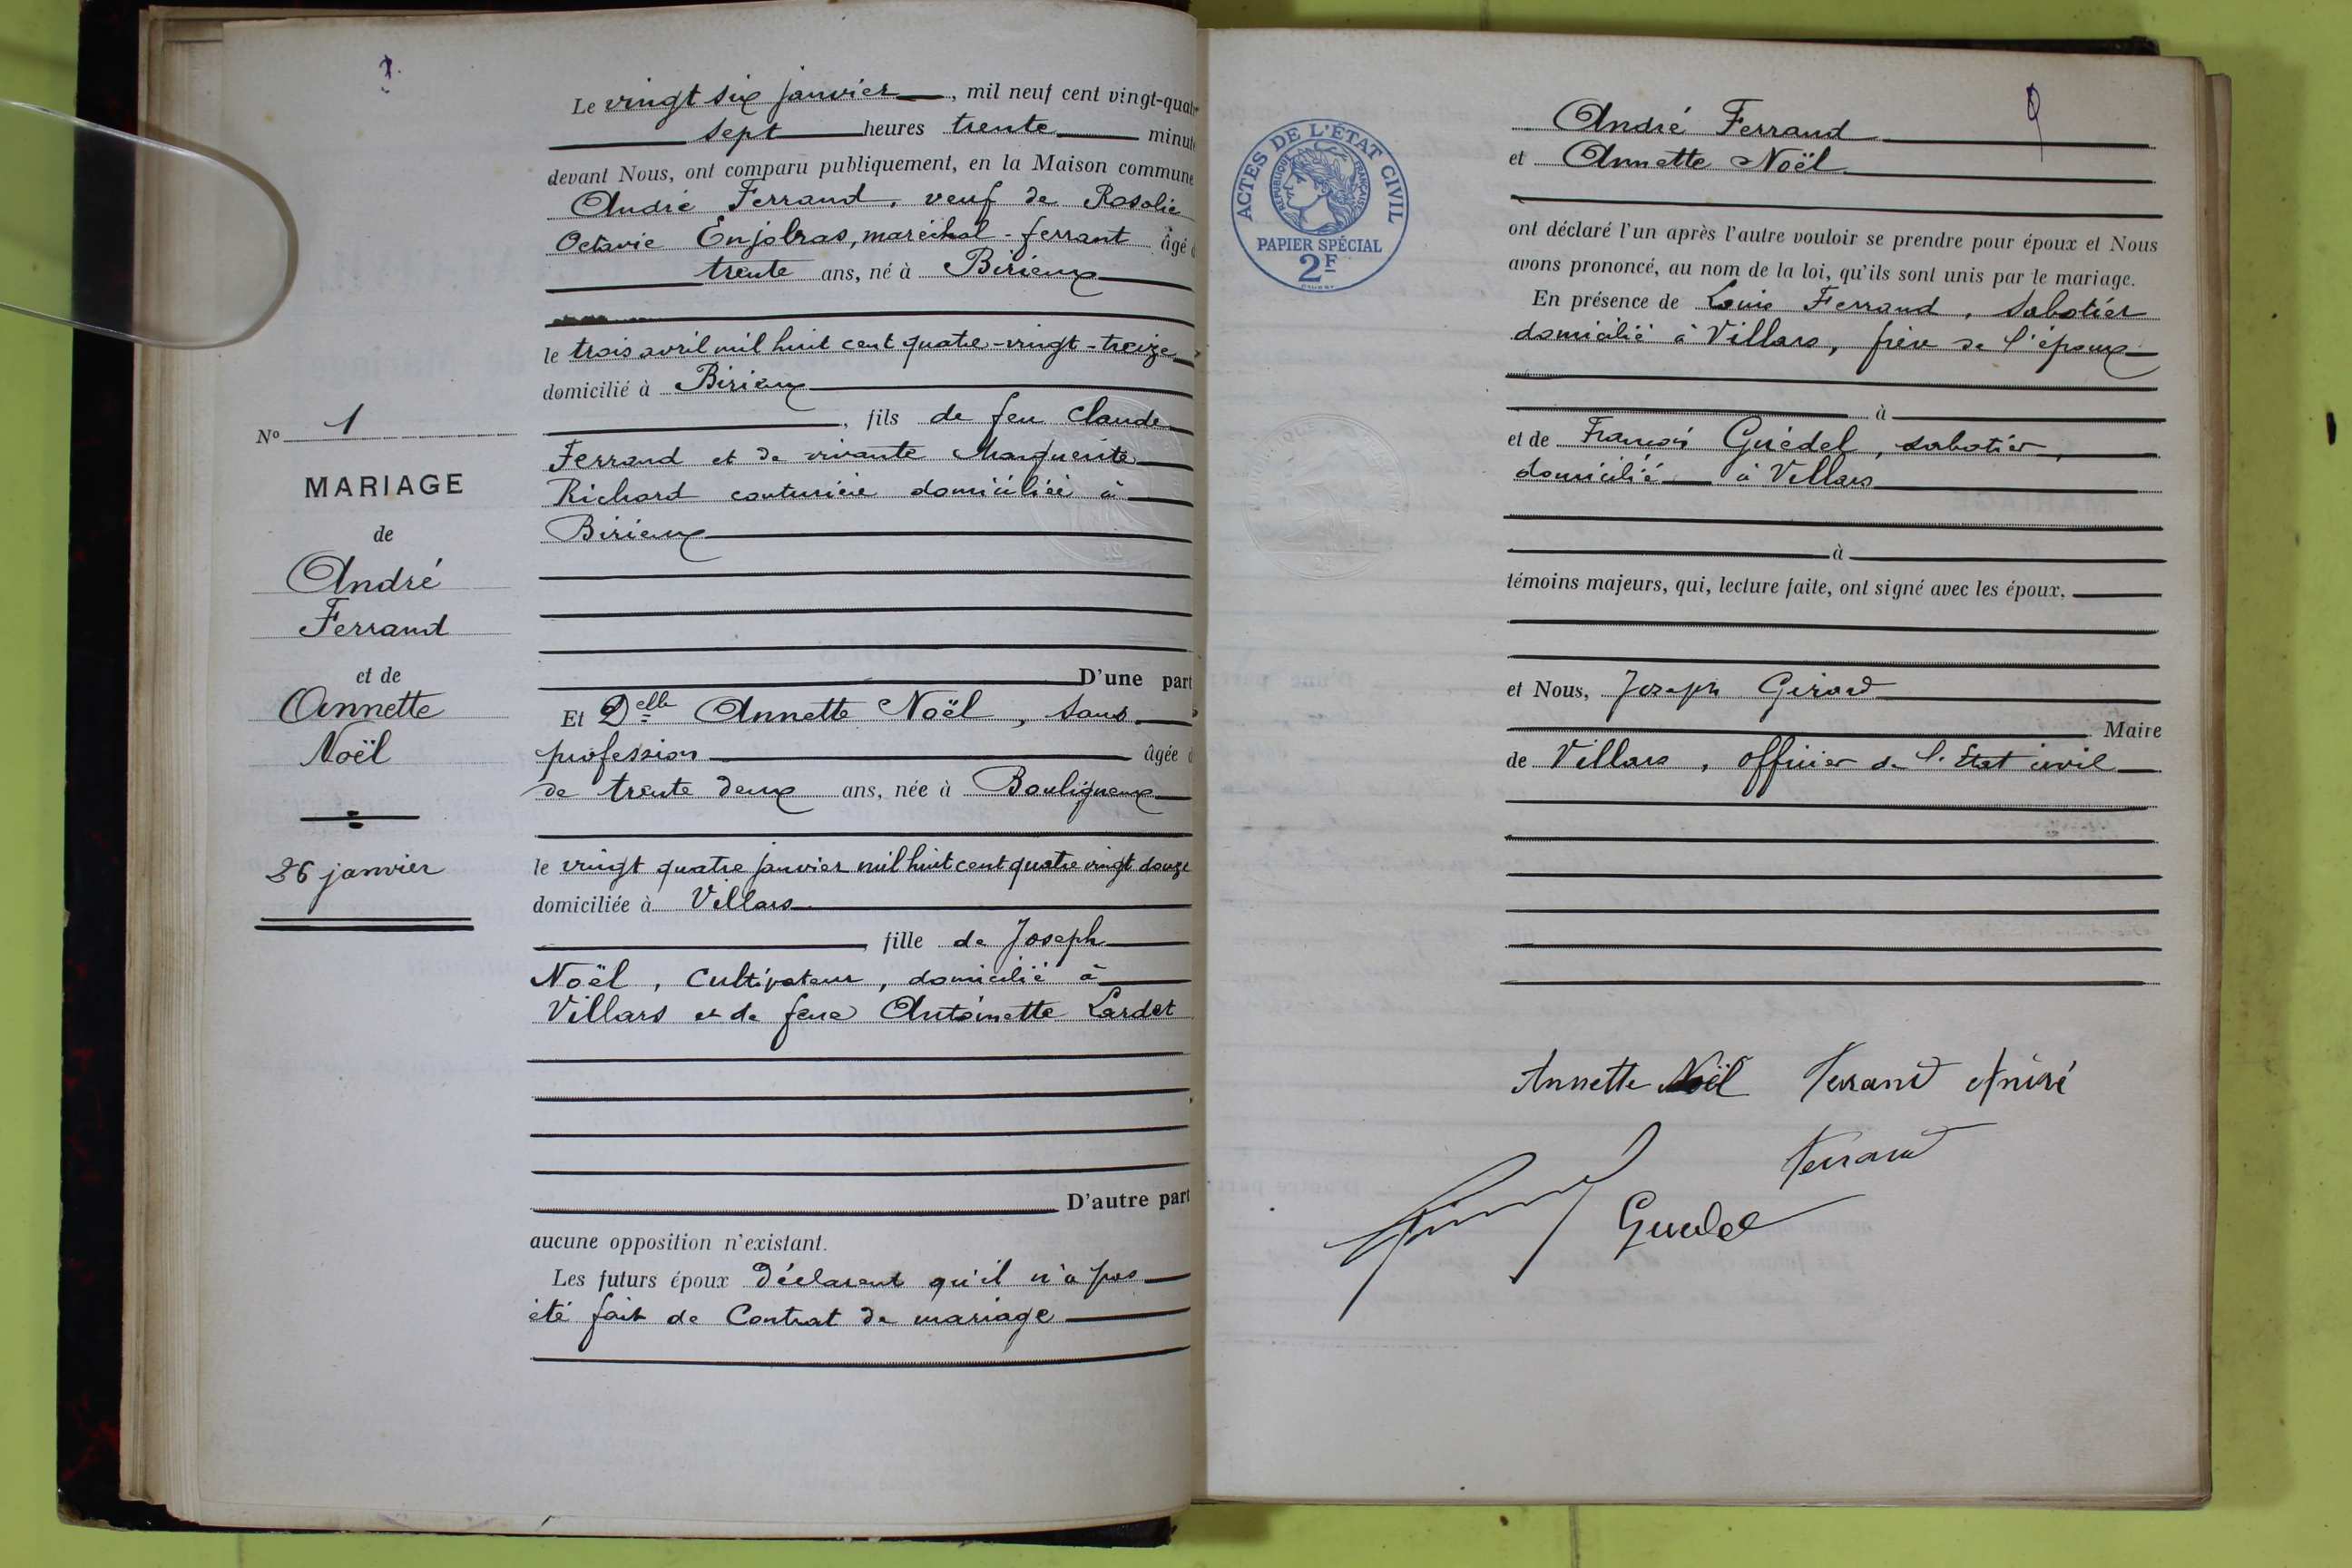 Le vingt six janvier, mil neuf cent vingt-quatr
sept heures trente minut
devant Nous, ont comparu publiquement, en la Maison commune
André Ferrand, veuf de Rosalie
Octavie Enjolras, maréchal-ferrant âgé d
trente ans, né à Birieux
le trois avril mil huit cent quatre-vingt-treize
domicilié à Birieux
, fils de feu Claude
Ferrand et de vivante Marguerite
Richard couturière domiciliée à
Birieux
D'une part
Et Delle Annette Noël, sans
profession âgée d
de trente deux ans, née à Bouligneux
le vingt quatre janvier mil huit cent quatre vingt douze
domiciliée à Villars
, fille de Joseph
Noël, Cultivateur, domicilié à
Villars et de feue Antoinette Lardet
D'autre part
aucune opposition n'existant.
Les futurs époux déclarent qu'il n'a pas
été fait de Contrat de mariage
No 1
MARIAGE
de
André
Ferrand
et de
Annette
Noël
26 janvier
ACTES DE L'ÉTAT CIVIL
RÉPUBLIQUE FRANÇAISE
PAPIER SPÉCIAL
2F
André Ferrand
et Annette Noël
ont déclaré l'un après l'autre vouloir se prendre pour époux et Nous
avons prononcé, au nom de la loi, qu'ils sont unis par le mariage.
En présence de Louis Ferrand, Sabotier
domicilié à Villars, frère de l'époux
à
et de François Guédel, sabotier,
domicilié à Villars
à
témoins majeurs, qui, lecture faite, ont signé avec les époux,
et Nous, Joseph Girard
Maire
de Villars, officier de l'Etat civil
Annette Noël Ferrand André
Ferrand
Guedel